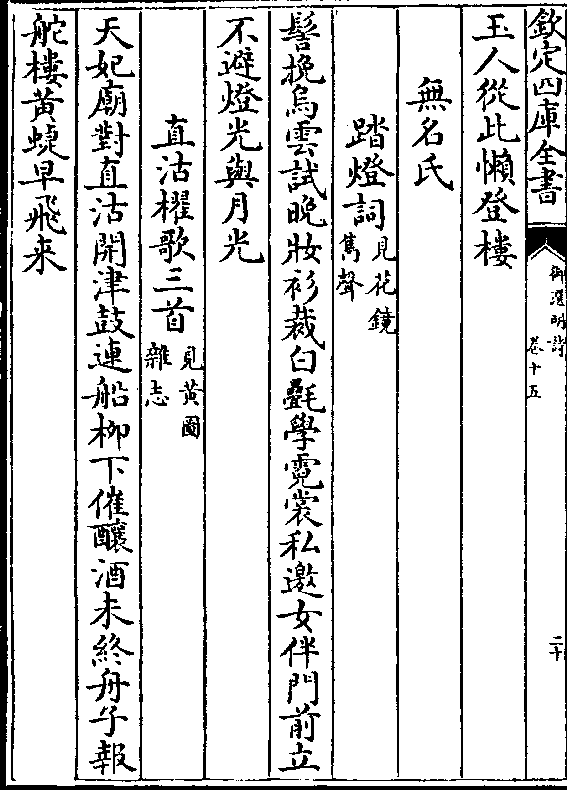 欽定四庫全書
御選明詩
卷十五
二十
玉人從此懶登樓
無名氏
踏燈詞見花鏡
雋聲
髻挽烏雲試晚妝衫裁白氎學霓裳私邀女伴門前立
不避燈光與月光
直沽櫂歌三首見黃圖
雜志
天妃廟對直沽開津鼓連船柳下催釀酒未終舟子報
舵樓黃蜨早飛来